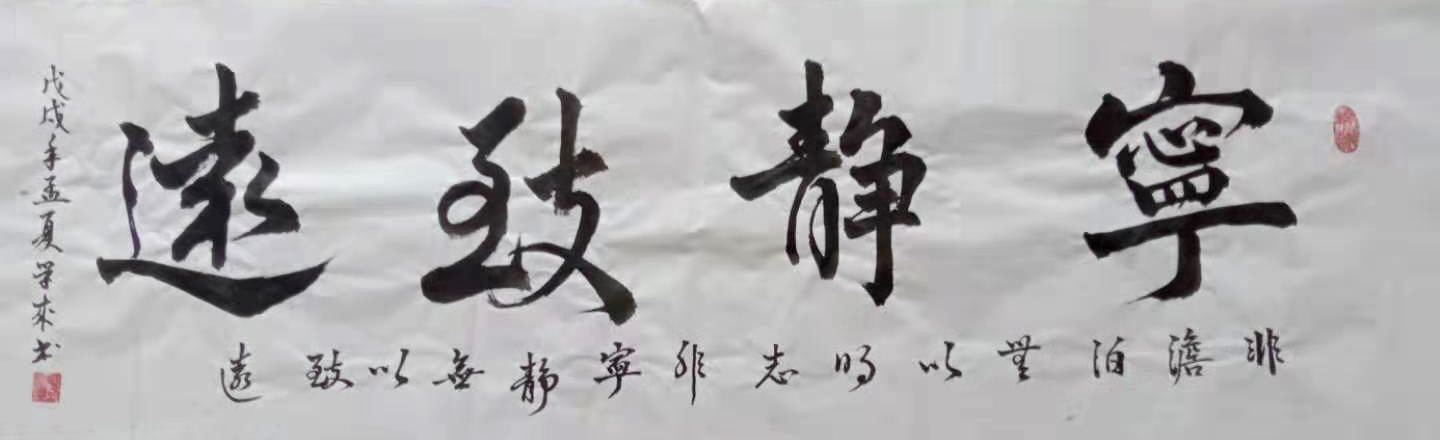 寧靜致遠
非澹泊無以明志非寧靜無以致遠
戊戌年孟夏學成书